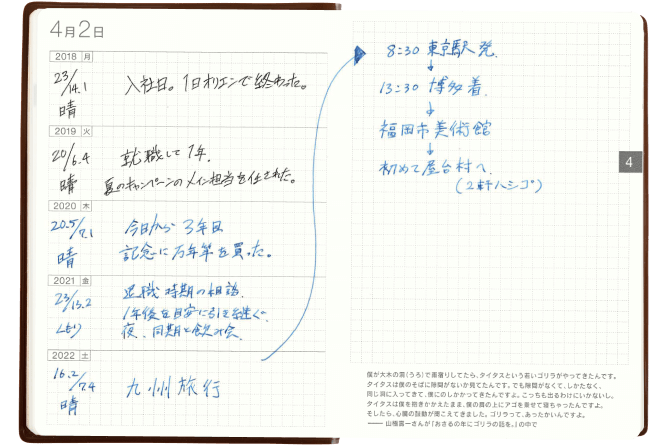 4月2日
2018 月
23/14.1
晴
入社日。1日オリエンで終わった。
2019 火
20/6.4
晴
就職して1年。
夏のキャンペーンのメイン担当を任された。
2020 木
20.5/7.1
晴
今日から3年目
記念に万年筆を買った。
2021 金
23/13.2
くもり
退職時期の相談。
1年後を目安に引き継ぐ。
夜、同期と飲み会。
2022 土
16.2/7.4
晴
九州旅行
8:30 東京駅発
↓
13:30 博多着
↓
福岡市美術館
↓
初めて屋台村へ
(2軒ハシゴ)
4
僕が大木の洞(うろ)で雨宿りしてたら、タイタスという若いゴリラがやってきたんです。
タイタスは僕のそばに隙間がないか見てたんです。でも隙間がなくて、しかたなく、
同じ洞に入ってきて、僕にのしかかってきたんですよ。こっちも出るわけにいかないし。
タイタスは僕を抱きかかえたまま、僕の肩の上にアゴを乗せて寝ちゃったんですよ。
そしたら、心臓の鼓動が聞こえてきました。ゴリラって、あったかいんですよ。
―― 山極寿一さんが『おさるの年にゴリラの話を。』の中で